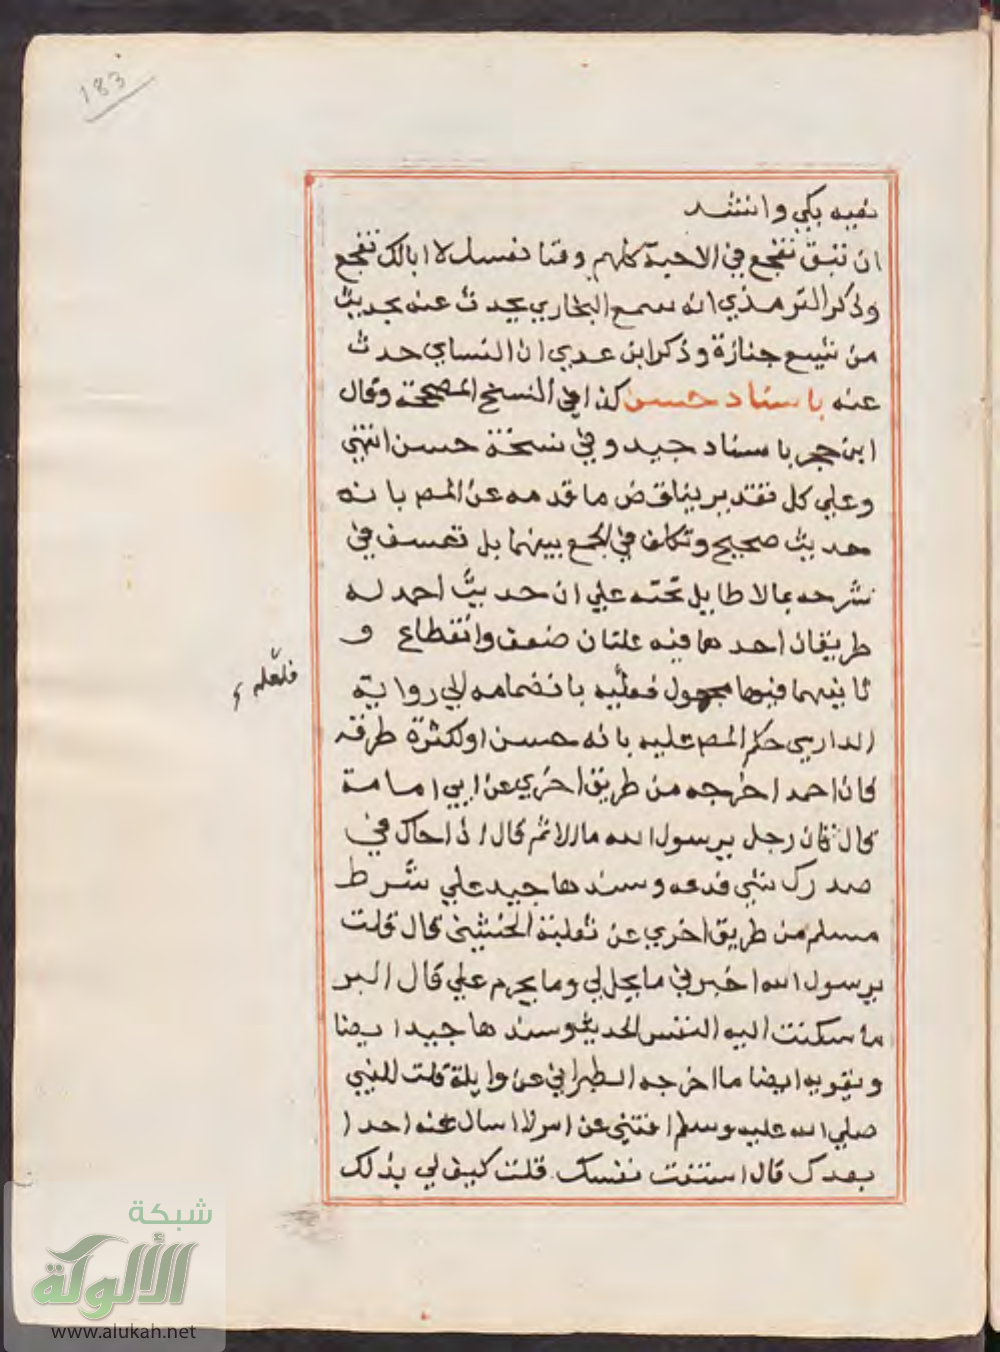 183
نعيه بكي وانشد
ان تبق تفجع في الاحبة كلهم وفنا نفسك لا ابالك تفجع
وذكر الترمذي انه سمع البخاري يحدث عنه بحديث
من شيع جنازة وذكر ابن عدي ان النساي حدث
عنه باسناد حسن كذا في النسخ المصححة وقال
ابن حجر باسناد جيد وفي نسخة حسن انتهى
وعلي كل تقدير يناقض ما قدمه عن المص بانه
حديث صحيح وتكلف في الجمع بينهما بل تعسف في
شرحه بما لا طايل تحته علي ان حديث احمد له
طريقان احدهما فيه علتان ضعف وانقطاع و
ثانيهما فيها مجهول فعليه بانضمامه الي رواية
فلعله
الدارمي حكم المص عليه بانه حسن او لكثرة طرقه
فان احمد اخرجه من طريق اخري عن ابي امامة
قال قال رجل يرسول الله ما الاثم قال اذا حاك في
صدرك شي فدعه وسندها جيد علي شرط
مسلم من طريق اخري عن ثعلبة الخشني قال قلت
يرسول الله اخبرني ما يحل لي وما يحرم علي قال البر
ما سكنت اليه النفس الحديث وسندها جيد ايضا
ويقويه ايضا ما اخرجه الطبراني عن وايلة قلت للنبي
صلي الله عليه وسلم افتني عن امر لا اسال عنه احدا
بعدك قال استفت نفسك قلت كيف لي بذلك
شبكة
الألوكة
www.alukah.net